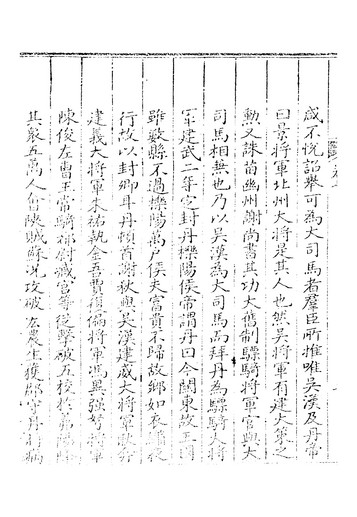 咸不悅詔舉可為大司馬者羣臣所推唯吳漢及丹帝
曰景將軍北州大將是其人也然吳將軍有建大策之
勳又誅苗幽州謝尚書其功大舊制驃騎將軍官與大
司馬相兼也乃以吳漢為大司馬而拜丹為驃騎大將
軍建武二年定封丹櫟陽侯帝謂丹曰今關東故王國
雖數縣不過櫟陽萬戶侯夫富貴不歸故鄉如衣繡夜
行故以封卿耳丹頓首謝秋與吳漢建威大將軍耿弇
建義大將軍朱祐執金吾賈復偏將軍馮異強弩將軍
陳俊左曹王常騎都尉臧宮等從擊破五校於羛陽降
其衆五萬人會陝賊蘇況攻破弘農生獲郡守丹時病